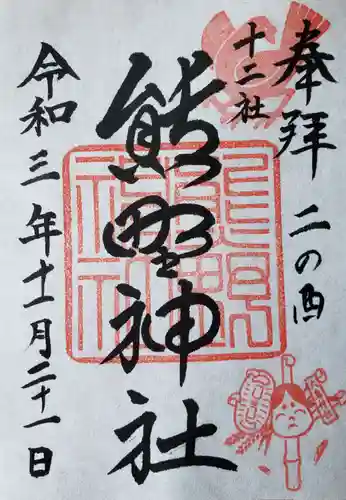 奉拝 二の酉
十二社
熊野神社
令和三年十一月二十一日
熊野神社